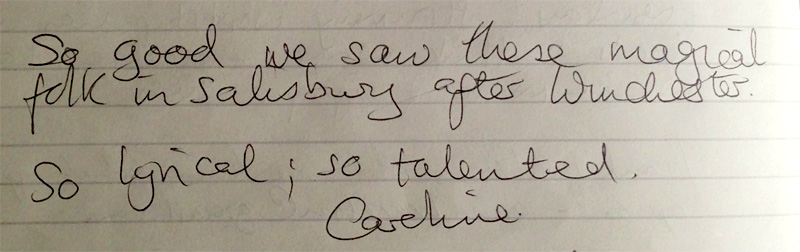 So good we saw these magical
folk in Salisbury after Winchester.
So lyrical; so talented.
Caroline.